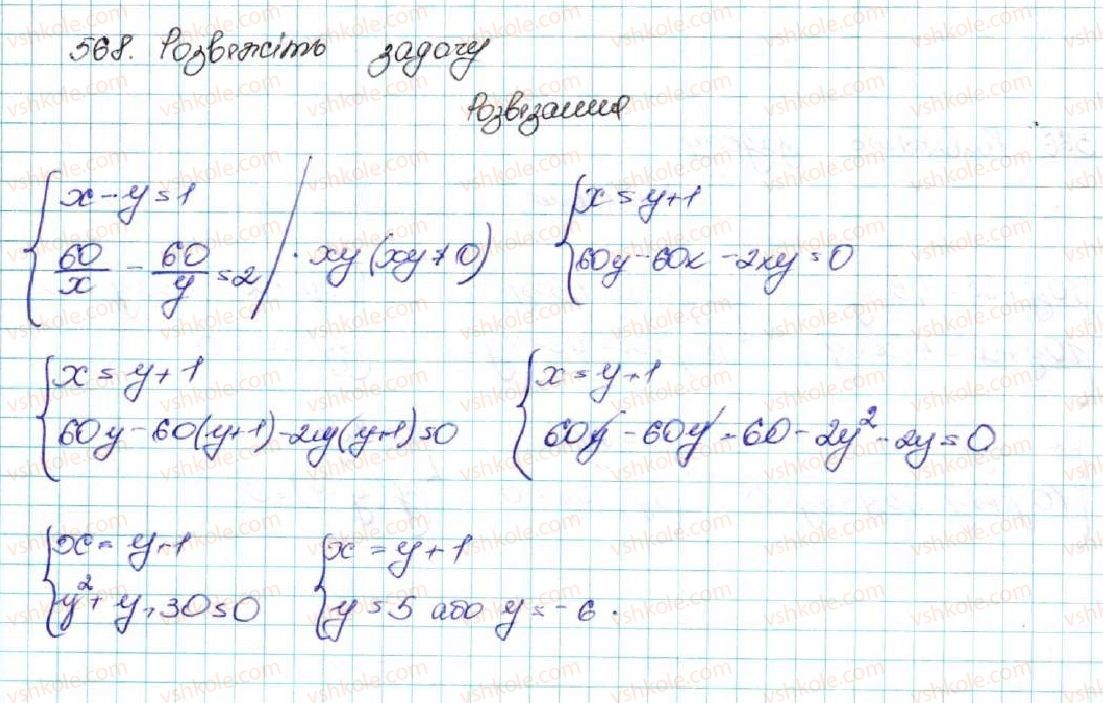 568. Розв'яжіть задачу
Розв'язання
{ x - y = 1
60/x - 60/y = 2 / · xy (xy ≠ 0)
{ x = y + 1
60y - 60x - 2xy = 0
{ x = y + 1
60y - 60(y+1) - 2y(y+1) = 0
{ x = y + 1
60y - 60y - 60 - 2y² - 2y = 0
{ x = y + 1
y² + y + 30 = 0
{ x = y + 1
y = 5 або y = -6.
vshkole.com